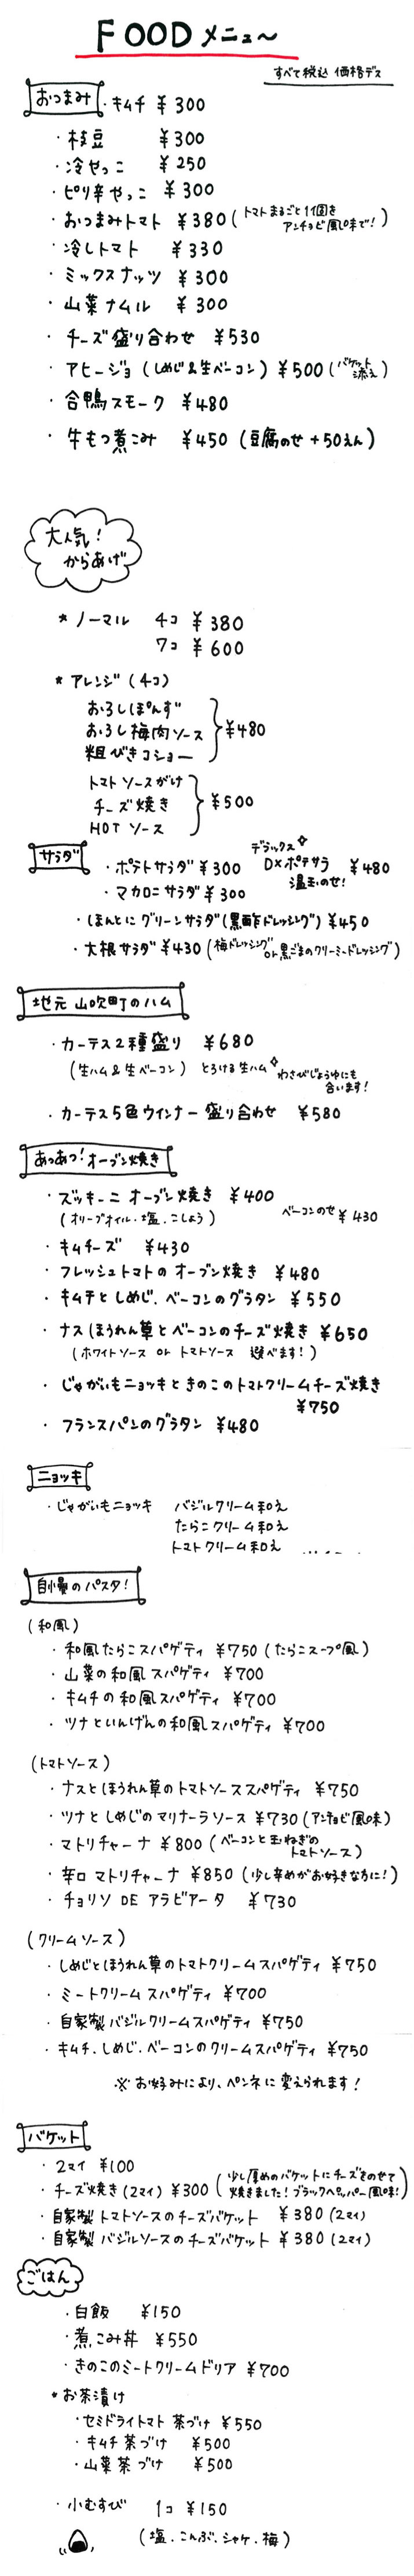 FOODメニュ〜
すべて税込 価格デス
おつまみ
・キムチ ¥300
・枝豆 ¥300
・冷やっこ ¥250
・ピリ辛やっこ ¥300
・おつまみトマト ¥380(トマトまるごと1個を アンチョビ風味で!)
・冷しトマト ¥330
・ミックスナッツ ¥300
・山菜ナムル ¥300
・チーズ盛り合わせ ¥530
・アヒージョ(しめじ&生ベーコン) ¥500(バケット添え)
・合鴨スモーク ¥480
・牛もつ煮こみ ¥450 (豆腐のせ+50えん)
大人気!
からあげ
* ノーマル 4コ ¥380
7コ ¥600
* アレンジ(4コ)
おろしぽんず
おろし梅肉ソース ¥480
粗びきコショー
トマトソースがけ
チーズ焼き ¥500
HOTソース
サラダ
・ポテトサラダ ¥300
デラックス
DXポテサラ ¥480
温玉のせ!
・マカロニサラダ ¥300
・ほんとにグリーンサラダ(黒酢ドレッシング) ¥450
・大根サラダ ¥430(梅ドレッシング or 黒ごまのクリーミードレッシング)
地元 山吹町のハム
・カーテス2種盛り ¥680
(生ハム&生ベーコン) とろける生ハム わさびじょうゆにも合います!
・カーテス5色ウインナー盛り合わせ ¥580
あつあつ!オーブン焼き
・ズッキーニオーブン焼き ¥400
(オリーブオイル・塩・こしょう) ベーコンのせ ¥430
・キムチーズ ¥430
・フレッシュトマトのオーブン焼き ¥480
・キムチとしめじ、ベーコンのグラタン ¥550
・ナスほうれん草とベーコンのチーズ焼き ¥650
(ホワイトソース or トマトソース 選べます!)
・じゃがいもニョッキときのこのトマトクリームチーズ焼き
¥750
・フランスパンのグラタン ¥480
ニョッキ
・じゃがいもニョッキ バジルクリーム和え
たらこクリーム和え
トマトクリーム和え
自慢のパスタ!
(和風)
・和風たらこスパゲティ ¥750(たらこスープ風)
・山菜の和風スパゲティ ¥700
・キムチの和風スパゲティ ¥700
・ツナといんげんの和風スパゲティ ¥700
(トマトソース)
・ナスとほうれん草のトマトソーススパゲティ ¥750
・ツナとしめじのマリナーラソース ¥730(アンチョビ風味)
・マトリチャーナ ¥800(ベーコンと玉ねぎのトマトソース)
・辛口マトリチャーナ ¥850(少し辛めがお好きな方に!)
・チョリソDEアラビアータ ¥730
(クリームソース)
・しめじとほうれん草のトマトクリームスパゲティ ¥750
・ミートクリームスパゲティ ¥700
・自家製バジルクリームスパゲティ ¥750
・キムチ、しめじ、ベーコンのクリームスパゲティ ¥750
※お好みにより、ペンネに変えられます!
バケット
・2マイ ¥100
・チーズ焼き(2マイ) ¥300(少し厚めのバケットにチーズをのせて焼きました!ブラックペッパー風味!)
・自家製トマトソースのチーズバケット ¥380(2マイ)
・自家製バジルソースのチーズバケット ¥380(2マイ)
ごはん
・白飯 ¥150
・煮こみ丼 ¥550
・きのこのミートクリームドリア ¥700
*お茶漬け
・セミドライトマト茶づけ ¥550
・キムチ茶づけ ¥500
・山菜茶づけ ¥500
・小むすび 1コ ¥150
(塩・こんぶ・シャケ・梅)